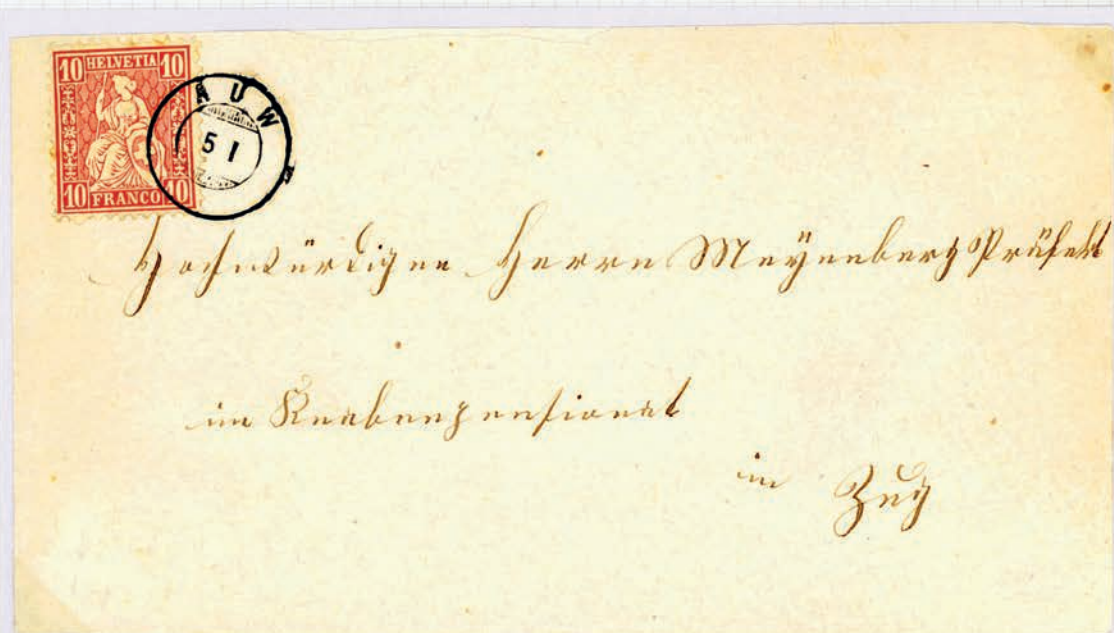 10 HELVETIA 10
10 FRANCO 10
AUW
5 I
Hochwürdigen Herrn Meyenberg Präfekt
im Knabenpensionat
in Zug